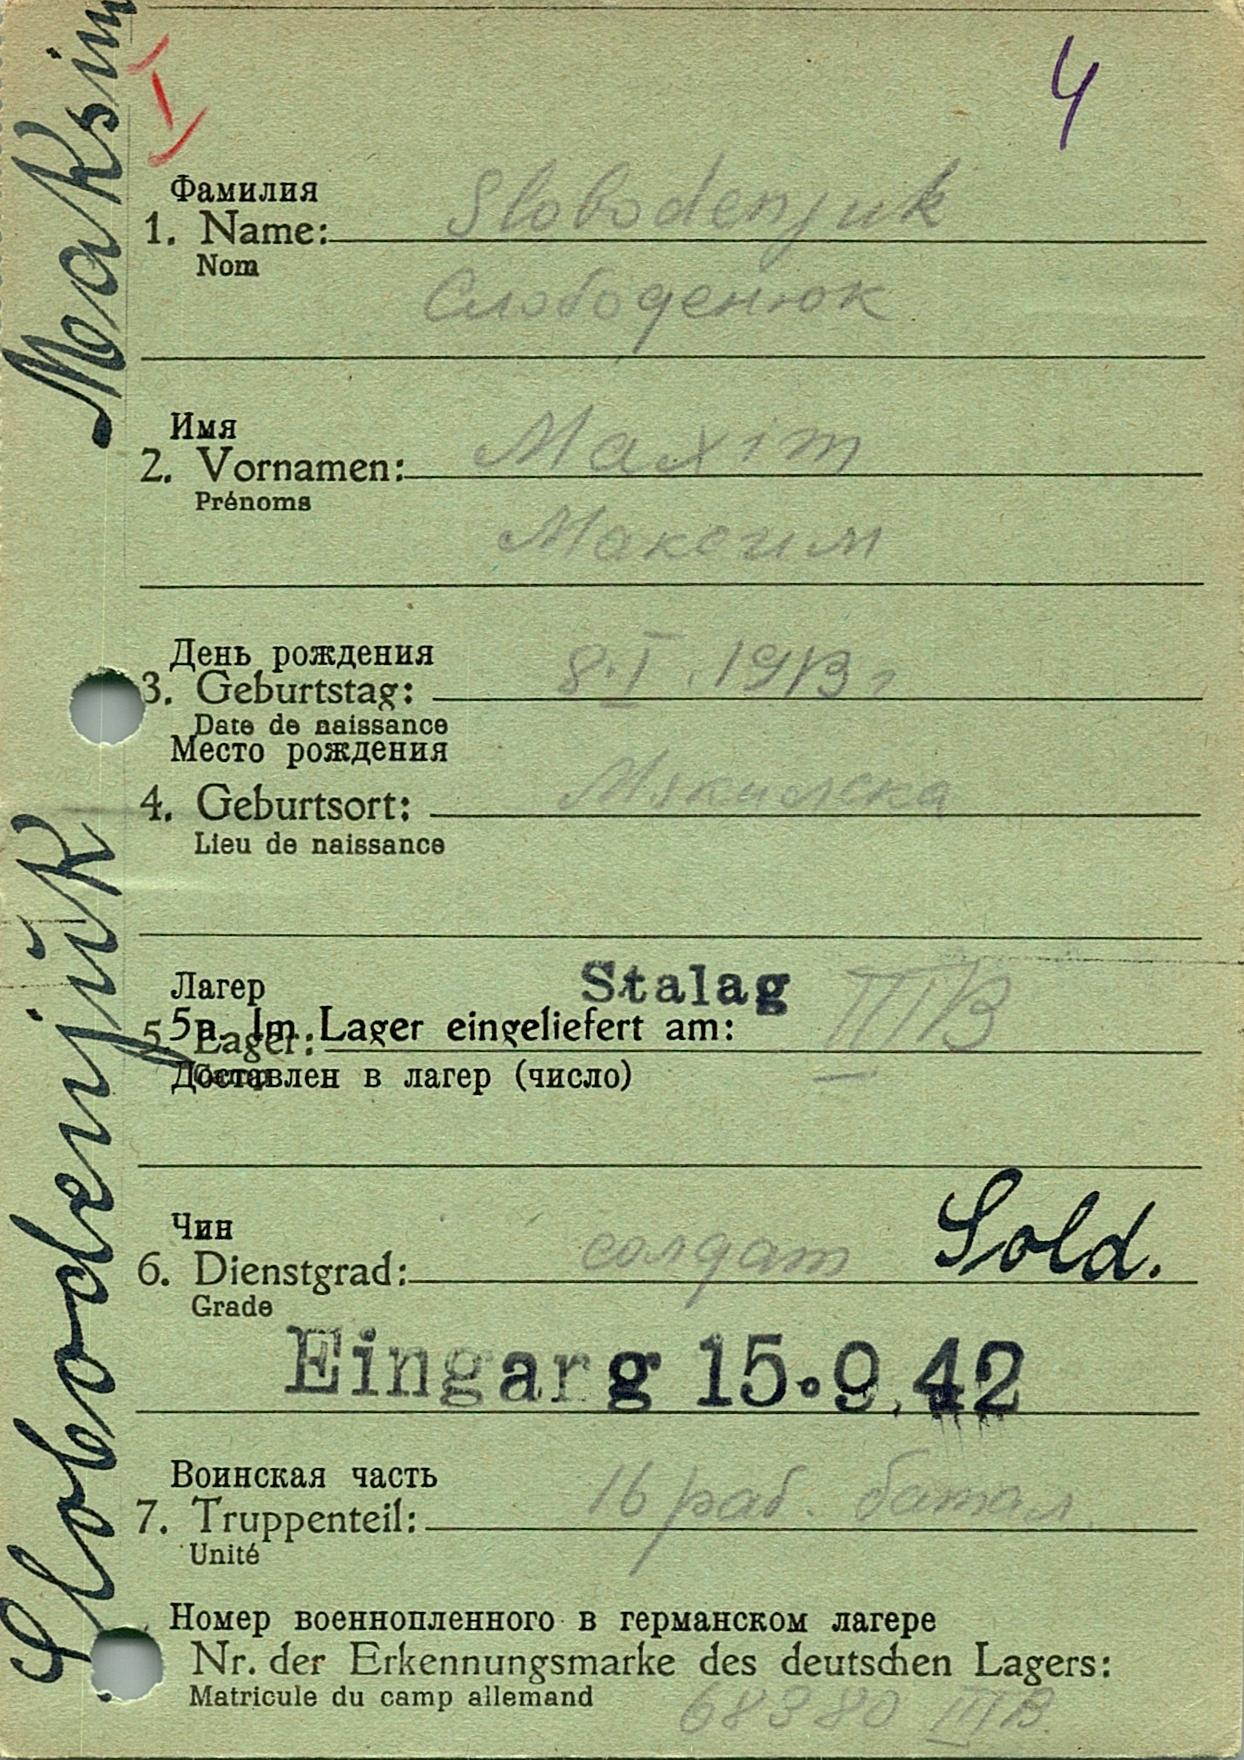 Slobodenjuk Maksim
I
4
Фамилия
1. Name: Slobodenjuk
Nom
Слободенюк
Имя
2. Vornamen: Maxim
Prénoms
Максим
День рождения
3. Geburtstag: 8.I.1913 г
Date de naissance
Место рождения
4. Geburtsort:
Lieu de naissance
Лагер
Stalag III B
5. Lager:
5a. Im Lager eingeliefert am:
Доставлен в лагер (число)
Чин
6. Dienstgrad: солдат Sold.
Grade
Eingarg 15.9.42
Воинская часть
7. Truppenteil: 16 раб. батал
Unité
Номер военнопленного в германском лагере
Nr. der Erkennungsmarke des deutschen Lagers:
Matricule du camp allemand
68380 III B.